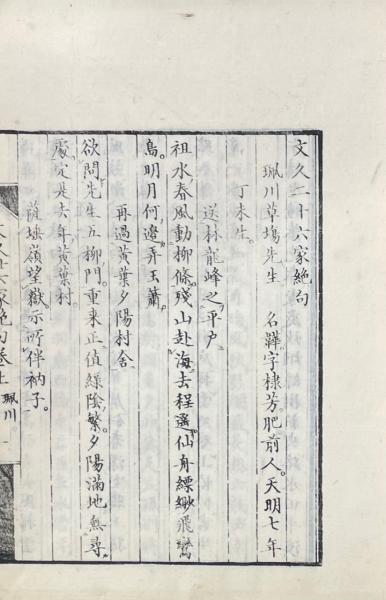 文久二十六家絶句
珮川草塲先生 名韡。字棣芳。肥前人。天明七年
丁未生。
送林龍峰之平戸
祖水春風動柳條。殘山赴海去程遥。仙舟縹緲飛鸞
島。明月何邊弄玉蕭。
再過黄葉夕陽村舎
欲問先生五柳門。重来正値緑陰繁。夕陽滿地無尋
處。定是去年黄葉村。
薩埵嶺望嶽。示所伴衲子。
文久廿六家絶句卷上 珮川 一